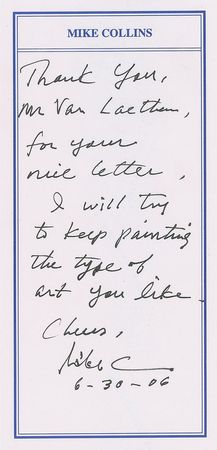 MIKE COLLINS
Thank You,
Mr Van Laethem,
for your
nice letter,
I will try
to keep painting
the type of
art you like.
Cheers,
Mike C
6-30-06